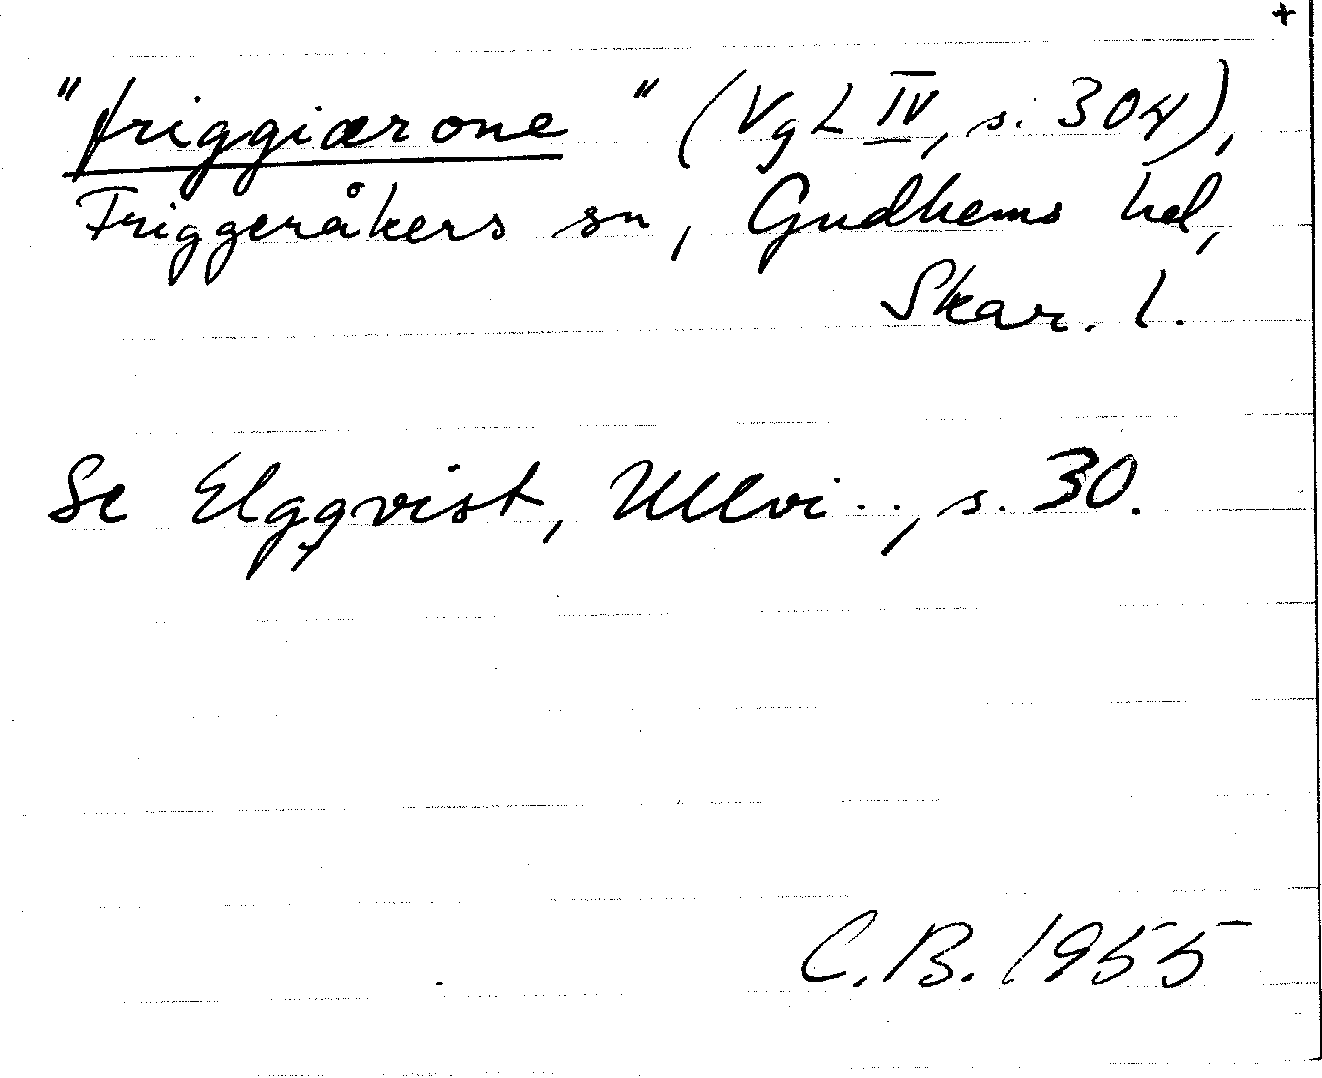 +
"friggiærone" (VgL IV, s. 304),
Friggeråkers sn, Gudhems hd,
Skar. l.
Se Elgqvist, Ullvi.., s. 30.
C.B. 1955